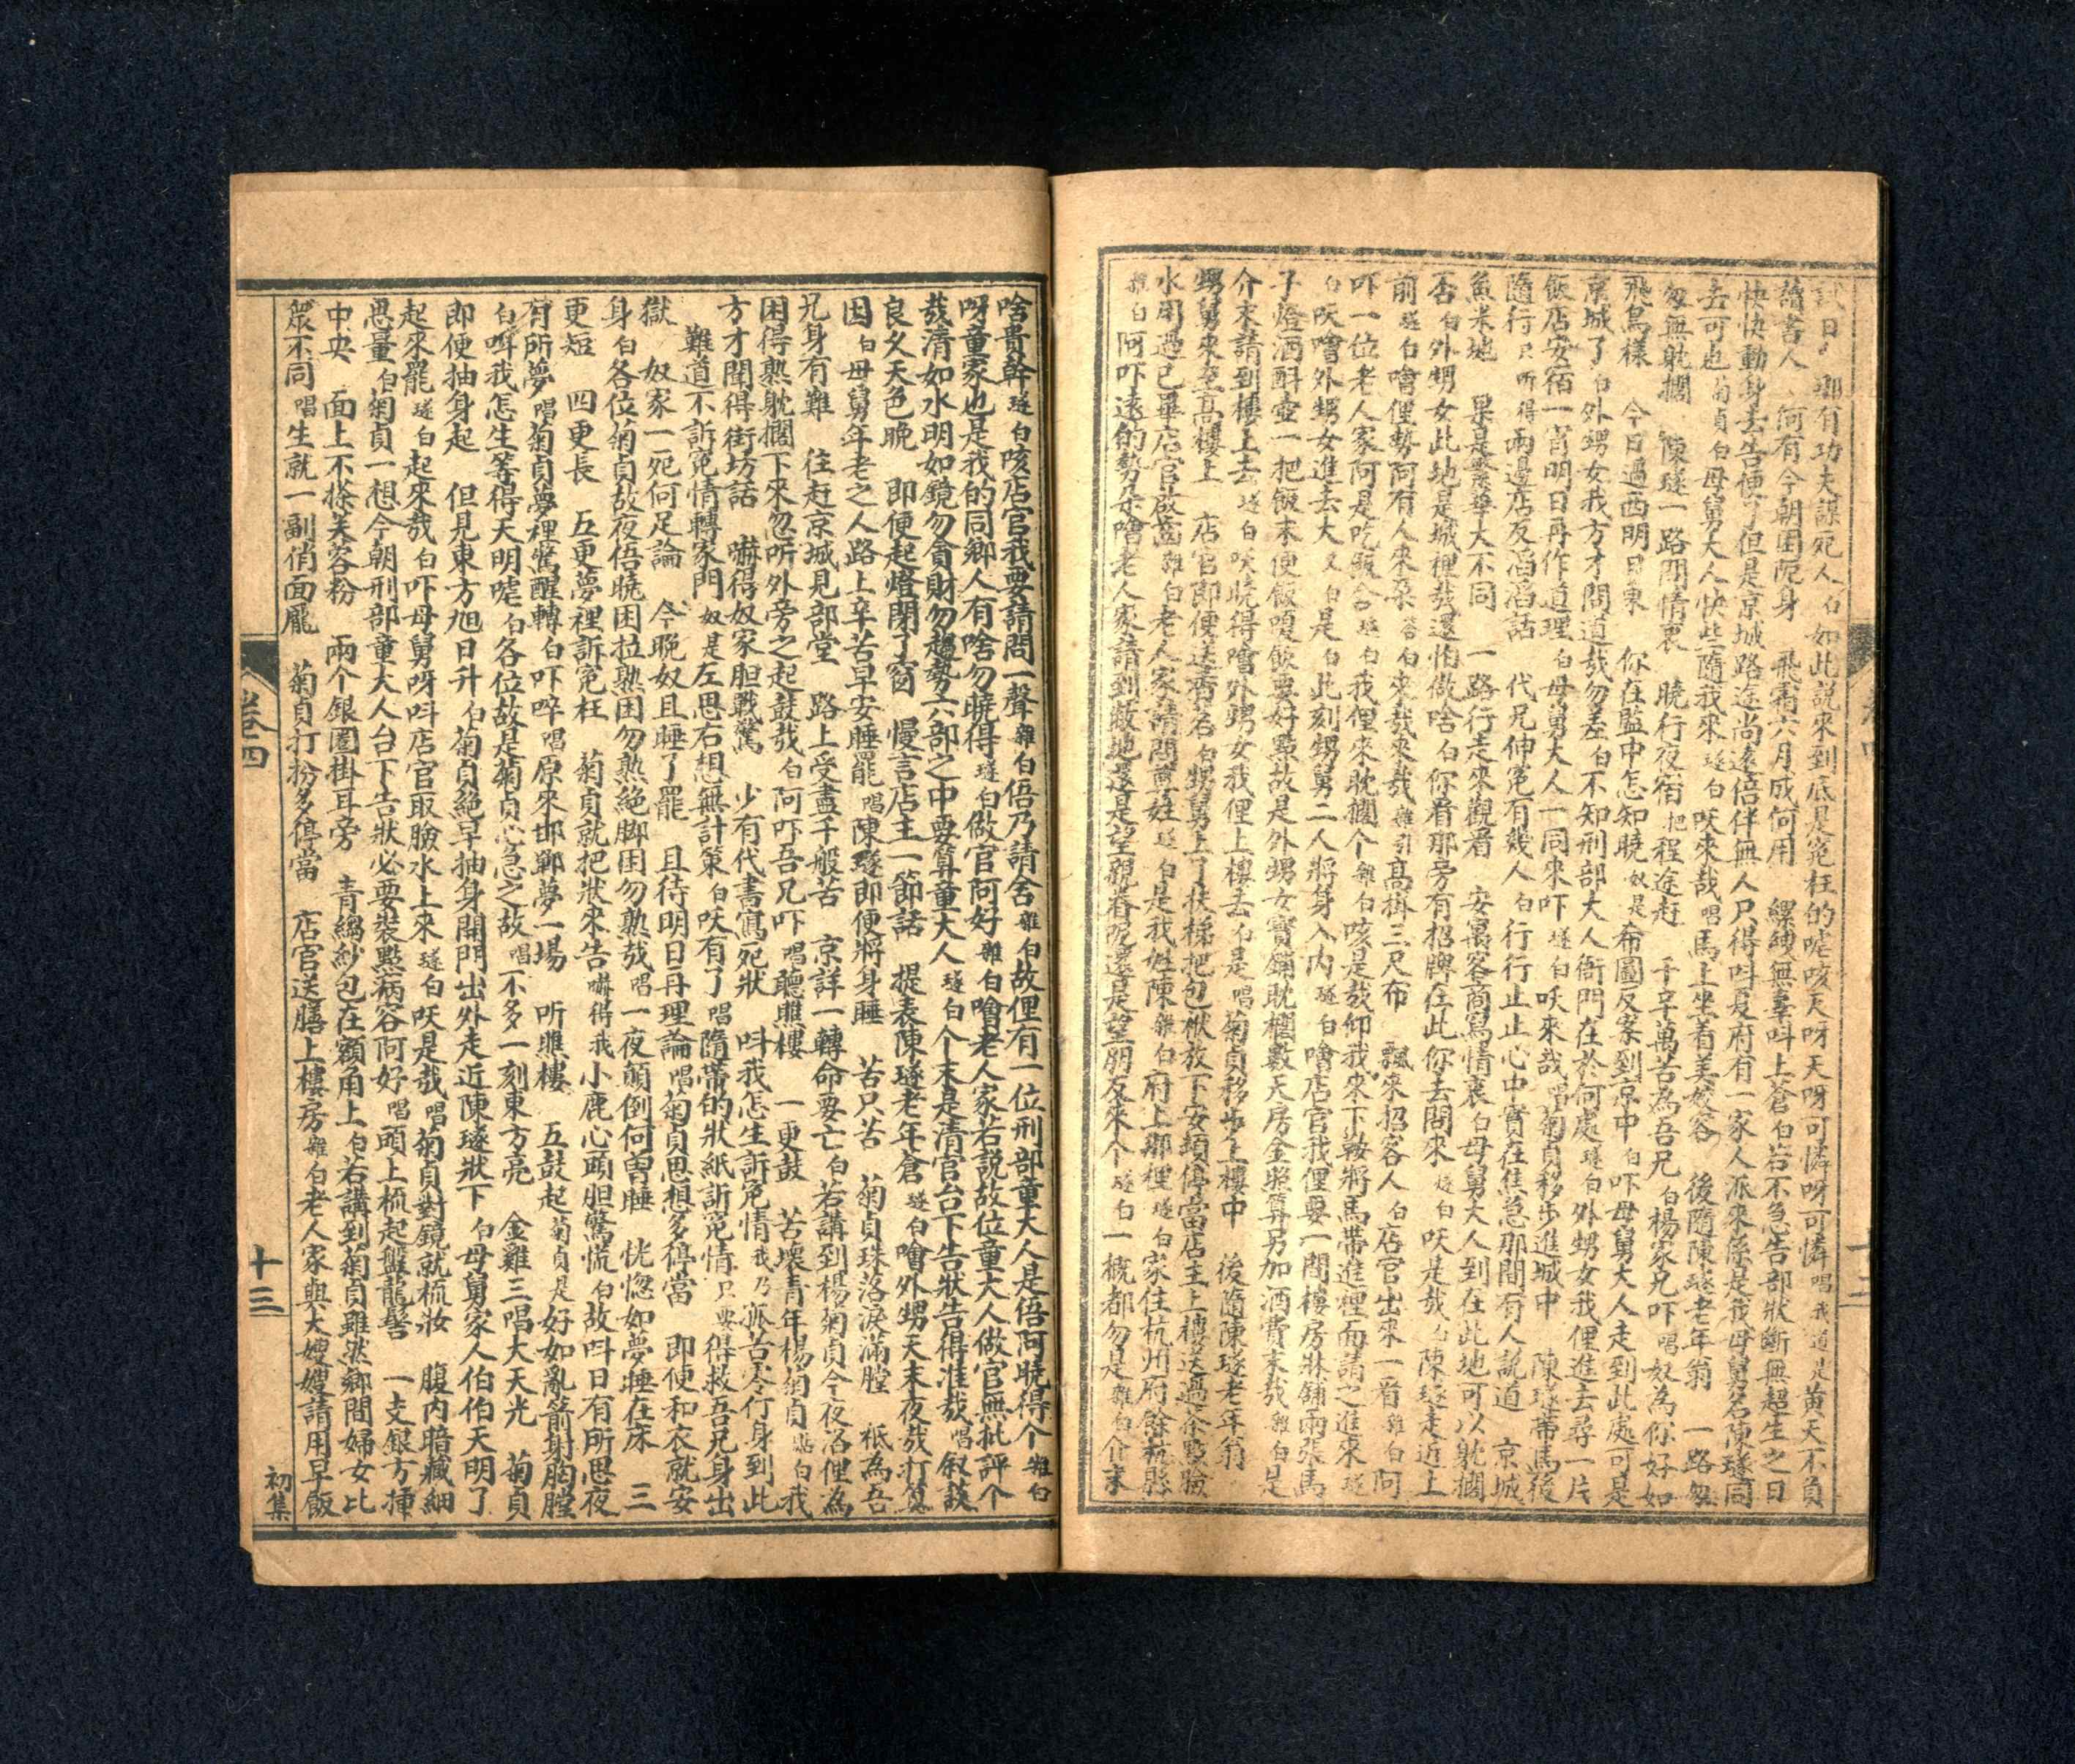 試日 那有功夫謀冤人白如此説來到底是冤枉的噓咳天呀天呀可憐呀可憐唱我道是黄天不負
讀書人 何有今朝困阨身 飛霜六月成何用 縲絏無辜呌上蒼白若不急告部狀斷無超生之日
快快動身去告便了但是京城路途尚遠倍伴無人只得呌夏府有一家人派來係是我母舅名陳璲同
去可也菊貞白母舅大人快些隨我來璲白哎來哉唱馬上坐着姜姣容 後隨陳璲老年翁 一路匆
匆無躭擱 陳璲一路問情衷 曉行夜宿把程途赶 千辛萬苦為吾兄白楊家兄吓唱奴為你好如
飛鳥樣 今日過西明日東 你在監中怎知曉奴是希圖反案到京中白吓母舅大人走到此處可是
京城了白外甥女我方才問道哉勿差白不知刑部大人衙門在於何處璲白外甥女我俚進去尋一片
飯店安宿一宵明日再作道理白母舅大人一同來吓璲白哎來哉唱菊貞移步進城中 陳璲帶馬後
隨行只听得兩邊店友滔滔話 代兄伸冤有幾人白行行止止心中實在焦急那間有人説道 京城
魚米地 果是繁華大不同 一路行走來觀看 安寓客商寫情衷白母舅大人到在此地可以躭擱
否白外甥女此地是城裡哉還怕做啥白你看那旁有招牌在此你去問來璲白哎是哉白陳璲走近上
前璲白噲俚勢阿有人來朶答白來哉來哉雜引高掛三尺布 飄來招客人白店官出來一看雜白阿
吓一位老人家阿是吃飯合璲白我俚來躭擱个雜白咳是哉仰我來下鞍將馬帶進裡面請之進來璲
白哎噲外甥女進去大又白是白此刻甥舅二人將身入內璲白噲店官我俚要一間樓房牀鋪兩張馬
子燈酒酙壺一把飯末便飯嗄飯要好點故是外甥女寶鋪躭擱數天房金照算另加酒費末哉雜白是
介末請到樓上去璲白哎曉得噲外甥女我俚上樓去白是唱菊貞移步上樓中 後隨陳璲老年翁
甥舅來至高樓上 店官即便送香茗白甥舅上了扶梯把包袱放下安頓停當店主上樓送過茶點臉
水用過已畢店官啟齒雜白老人家請問尊姓璲白是我姓陳雜白府上那裡璲白家住杭州府餘杭縣
雜白阿吓遠的勢朶噲老人家請到敝地還是望親眷呢還是望朋友來个璲白一概都勿是雜白介末
啥貴幹璲白咳店官我要請問一聲雜白倍乃請舍雜白故俚有一位刑部童大人是倍阿曉得个雜白
呀童家也是我的同鄉人有啥勿曉得璲白做官阿好雜白噲老人家若説故位童大人做官無批評个
哉清如水明如鏡勿貪財勿趨勢六部之中要算童大人璲白个末是清官台下告狀告得准哉唱叙談
良久天色晚 即便起燈閉了窗 慢言店主一節話 提表陳璲老年倉璲白噲外甥天末夜哉打算
困白母舅年老之人路上辛苦早安睡罷唱陳璲即便將身睡 苦只苦 菊貞珠落淚滿膛 衹為吾
兄身有難 往赶京城見部堂 路上受盡千般苦 京詳一轉命要亡白若講到楊菊貞今夜洛俚為
困得熟躭擱下來忽听外旁之起鼓哉白阿吓吾兄吓唱聽照樓 一更鼓 苦壞青年楊菊貞點白我
方才聞得街坊話 嚇得奴家胆戰驚 少有代書寫冤狀 呌我怎生訴冤情我乃孤苦冷仃身到此
難道不訴冤情轉家門奴是左思右想無計策白哎有了唱隨帶的狀紙訴冤情只要得救吾兄身出
獄 奴家一死何足論 今晚奴且睡了罷 且待明日再理論唱菊貞思想多得當 即便和衣就安
身白各位菊貞故夜倍曉困拉熟困勿熟絶脚困勿熟哉唱一夜顛倒何曽睡 恍惚如夢睡在床 三
更短 四更長 五更夢裡訴冤枉 菊貞就把狀來告嚇得我小鹿心頭胆驚慌白故呌日有所思夜
有所夢唱菊貞夢裡驚醒轉白吓啐唱原來邯鄲夢一場 听樵樓 五鼓起菊貞是好如亂箭射胸膛
白呌我怎生等得天明噓白各位故是菊貞心急之故唱不多一刻東方亮 金雞三唱大天光 菊貞
即便抽身起 但見東方旭日升白菊貞絶早抽身開門出外走近陳璲狀下白母舅家人伯伯天明了
起來罷璲白起來哉白吓母舅呀呌店官取臉水上來璲白哎是哉唱菊貞對鏡就梳妝 腹內暗藏細
思量白菊貞一想今朝刑部童大人台下告狀必要裝點病容阿好唱頭上梳起盤龍髻 一支銀方揷
中央 面上不搽芙容粉 兩个銀圈掛耳旁 青縐紗包在額角上白若講到菊貞雖然鄉間婦女比
衆不同唱生就一副俏面龐 菊貞打扮多停當 店官送膳上樓房雜白老人家與大嫂嫂請用早飯
卷四
十三
初集